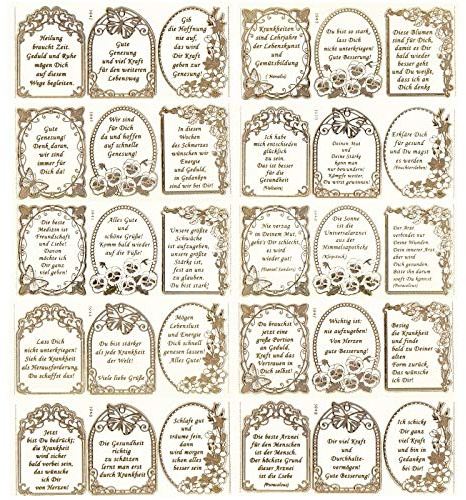 Heilung
braucht Zeit.
Geduld und Ruhe
mögen Dich
auf diesem
Wege begleiten.
Gute
Genesung
und viel Kraft
für den weiteren
Lebensweg
Gib
die Hoffnung
nie auf, das
wird Dir Kraft
geben zur
Genesung!
Krankheiten
sind Lehrjahre
der Lebenskunst
und
Gemütsbildung
(Novalis)
Du bist so
stark, lass Dich
nicht unterkriegen!
Gute Besserung!
Diese Blumen
sind für Dich,
damit es Dir
bald wieder
besser geht
und Du weißt,
dass ich an
Dich denke
Gute
Genesung!
Denk daran,
wir sind
immer für
Dich da!
Wir sind
für Dich
da und hoffen
auf schnelle
Genesung!
In diesen
Wochen
des Schmerzes
wünschen wir
Energie
und Geduld,
in Gedanken
sind wir bei Dir!
Ich habe
mich entschieden
glücklich
zu sein.
Das ist besser
für die
Gesundheit
(Voltaire)
Deinen Mut
und
Deine Stärke
kann man
nur bewundern!
Kämpfe weiter,
Du wirst gewinnen!
Erkläre Dich
für gesund
und Du magst
es werden
Die beste
Medizin ist
Freundschaft
und Liebe!
Darum
möchte ich
Dir ganz
viel geben!
Alles Gute
und
schöne Grüße!
Komm bald wieder
auf die Füße!
Unsere größte
Schwäche
ist aufzugeben,
unsere größte
Stärke ist,
fest an uns
zu glauben.
Du bist stark!
Nie verzag
in Deinem Mut,
geht's Dir schlecht,
es wird
wieder gut!
Die Sonne
ist die
Universalarznei
aus der
Himmelsapotheke
(Klopstock)
Der Arzt
verbindet nur
Deine Wunden.
Dein innerer Arzt
aber wird
Dich gesunden.
Bitte ihn darum
sooft Du kannst
(Paracelsus)
Lass Dich
nicht unterkriegen!
Sieh die Krankheit
als Herausforderung.
Du schaffst das!
Du bist stärker
als jede Krankheit
der Welt!
Viele liebe Grüße!
Mögen
Lebenslust
und Energie
Dich schnell
genesen lassen!
Alles Gute!
Du brauchst
jetzt eine
große Portion
an Geduld,
Kraft und das
Vertrauen in
Dich selbst!
Wichtig ist:
nie aufzugeben!
Von Herzen
gute Besserung!
Besieg
die Krankheit
und finde
bald zu Deiner
alten
Form zurück.
Das wünsche
ich Dir!
Jetzt
bist Du bedrückt;
die Krankheit
wird sicher
bald vorbei sein,
das wünsche ich
Dir von Herzen!
Die Gesundheit
richtig
zu schätzen
lernt man erst
durch Krankheit
Schlafe gut
und
träume fein,
dann
wird morgen
schon alles
besser sein
Die beste Arznei
für den Menschen
ist der Mensch.
Der höchste Grund
dieser Arznei
ist die Liebe
(Paracelsus)
Dir viel Kraft
und
Durchhalte-
vermögen!
Gute Besserung!
Ich schicke
Dir ganz
viel Kraft
und bin in
Gedanken
bei Dir!